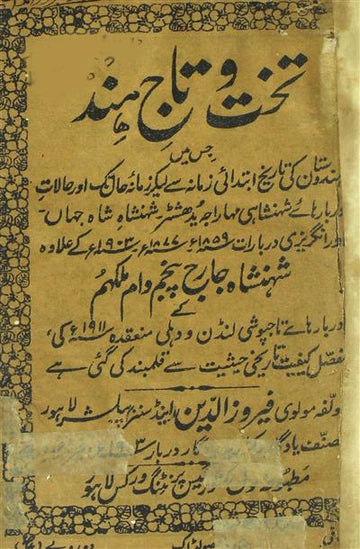 تخت و تاج ہند
جس میں
ہندوستان کی تاریخ ابتدائی زمانہ سے لیکر زمانہ حال تک اور حالات
دربارہائے شہنشاہی مہاراجہ یدھشٹر شہنشاہ شاہ جہاں
اور انگریزی دربارات ۱۸۵۹ء ۱۸۷۷ء ۱۹۰۳ء کے علاوہ
شہنشاہ جارج پنجم دام ملکہم
کے
دربارہائے تاجپوشی لنڈن و دہلی منعقدہ سنہ ۱۹۱۱ء کی
مفصل کیفیت تاریخی حیثیت سے قلمبند کی گئی ہے
مولفہ مولوی فیروز الدین اینڈ سنز پبلشر لاہور
مصنف یادگار دربار ۱۹۰۳
پرنٹنگ ورکس لاہور